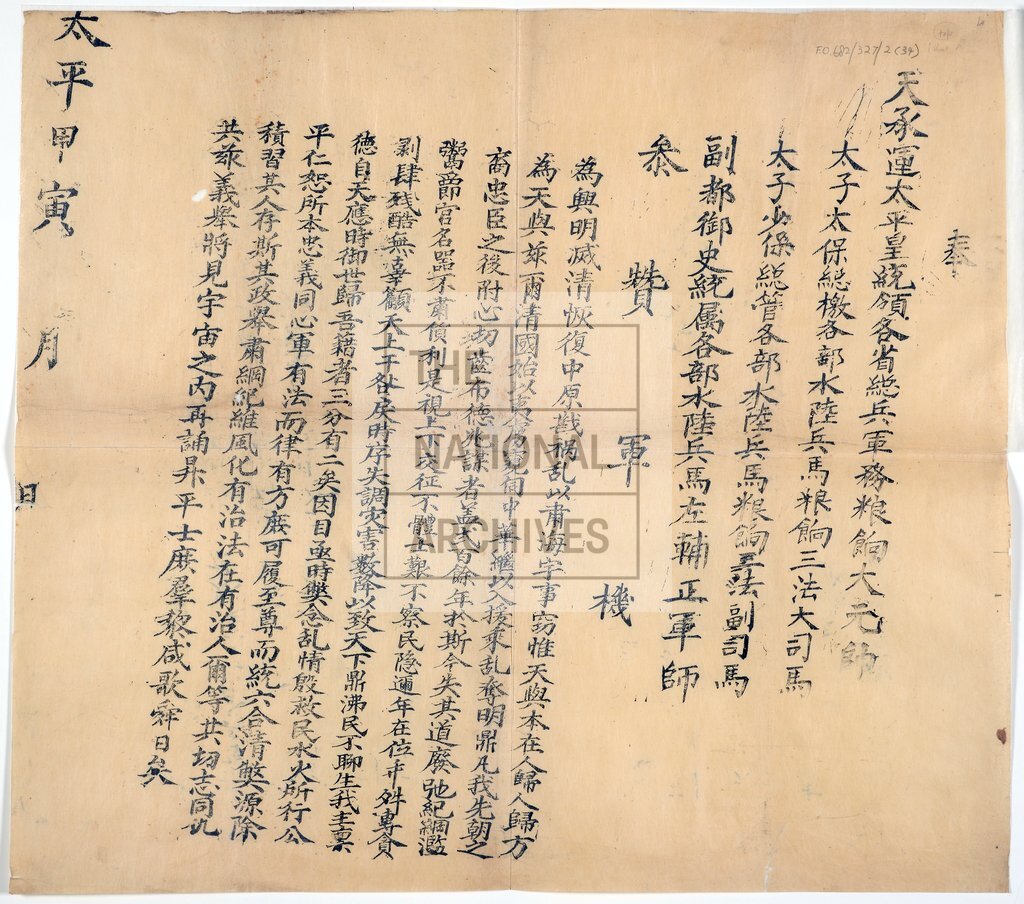 奉
天承運太平皇統領各省總兵軍務粮餉大元帥
太子太保總檄各部水陸兵馬粮餉三法大司馬
太子少保總管各部水陸兵馬粮餉三法副司馬
副都御史統属各部水陸兵馬左輔正軍師
叅贊軍機
為興明滅清恢復中原戡禍乱以肅海宇事窃惟天與本在人歸人歸方
為天與兹爾清國始以 中 繼以入援乘乱奪明鼎凡我先朝之
裔忠臣之後附心切 布德兆謀者盖弍百餘年於斯今失其道廢弛紀綱濫
鬻爵官名器不肅貨利是視上下交征不體上艱不察民隐邇年在位 專貪
剥肆残酷無辜籲天上干咎戾時序失調灾害数降以致天下鼎沸民不聊生我主禀
德自天應時御世歸吾藉者三分有二矣因目亟時獘念乱情殷救民水火所行公
平仁恕所本忠義同心軍有法而律有方庶可履至尊而統六合清獘源除
積習其人存斯其政舉肅綱紀維風化有治法在有治人爾等共切志同
共兹義舉將見宇宙之内再誦昇平士庶羣黎咸歌舜日矣
太平甲寅 月 日
F.O.682/327/2(34)
THE
NATIONAL
ARCHIVES